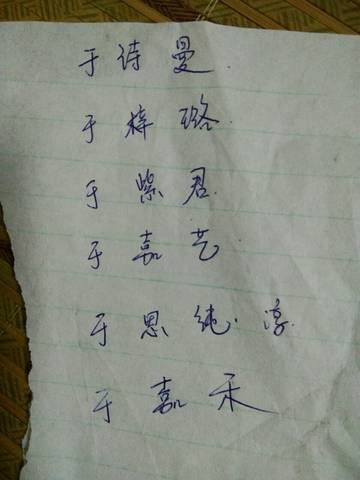 于诗曼
于梓璐
于紫君
于嘉艺
于思纯.淳.
于嘉禾